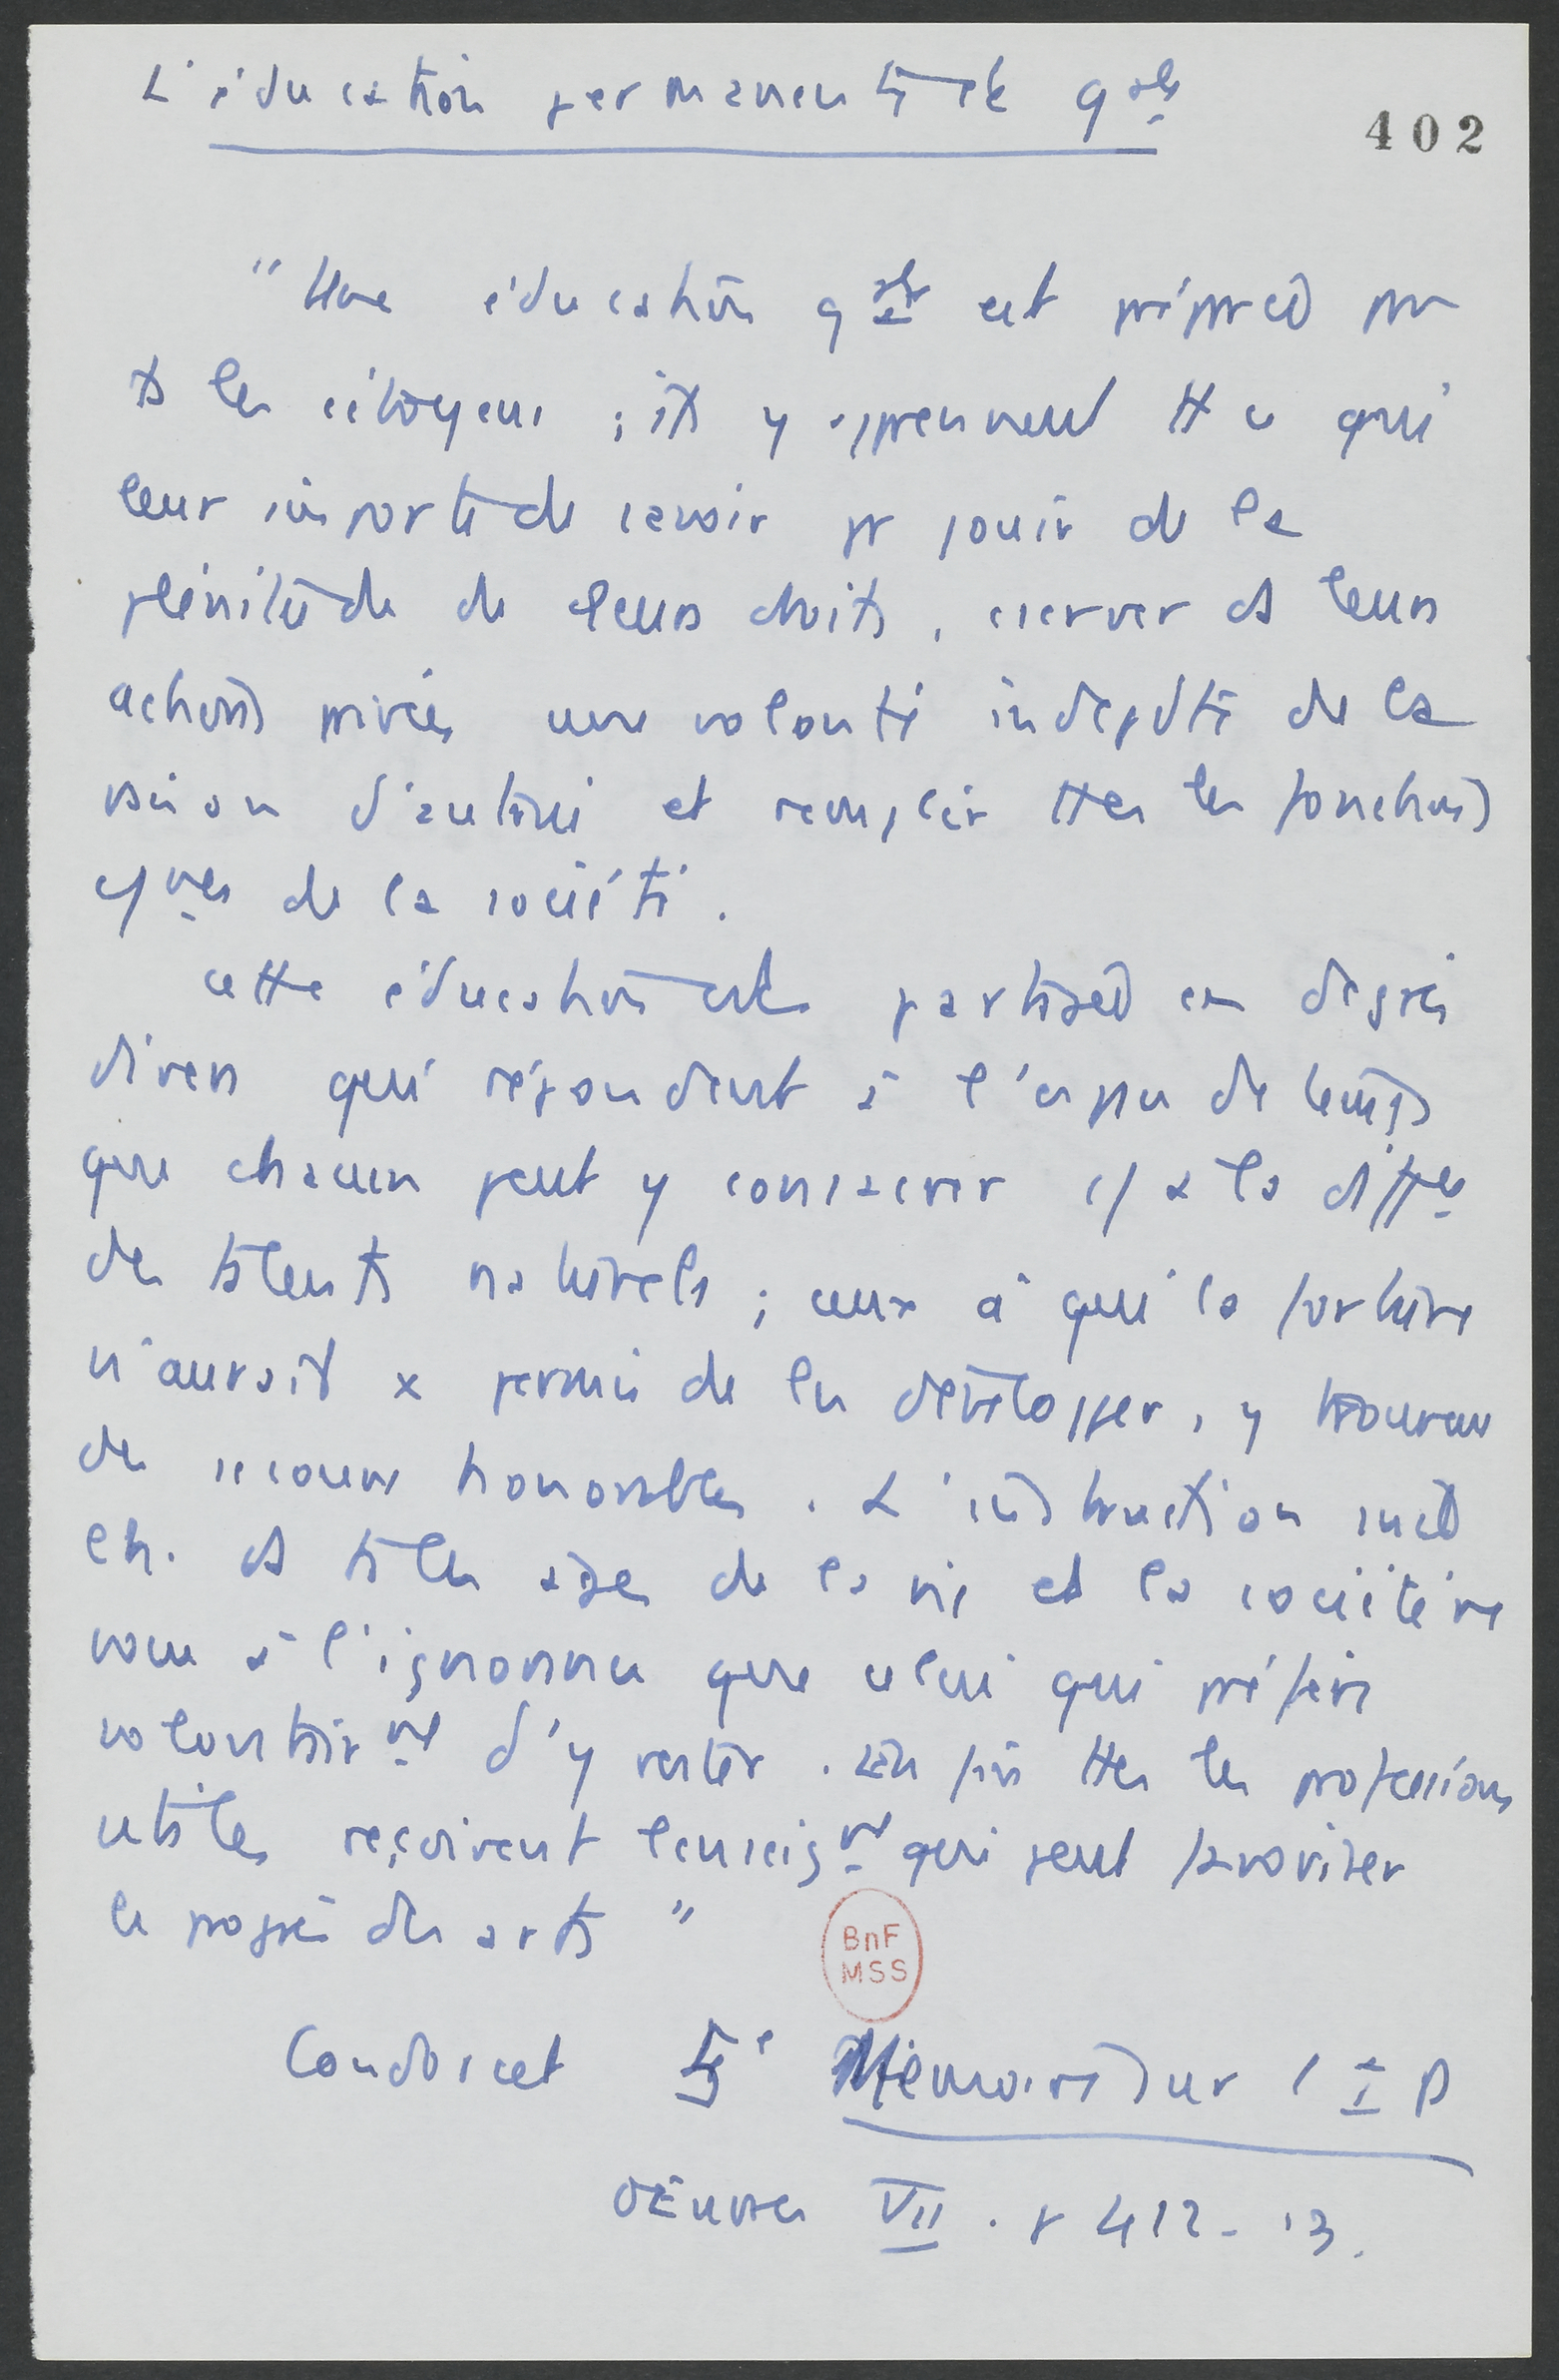 L'éducation permanente et gale
402
"Une éducation gale est préparée pr
ts les citoyens ; ils y apprennent tt ce qui
leur importe de savoir pr jouir de la
plénitude de leurs droits, conserver ds leurs
actions privées une volonté indépdte de la
raison d'autrui et remplir ttes les fonctions
cques de la société.
Cette éducation est partagée en degrés
divers qui répondent à l'espace de temps
que chacun peut y consacrer c/ à la diffce
des talents naturels ; ceux à qui la fortune
n'aurait x permis de les développer, y trouvent
des secours honorables. L'instruction suit
l'h. ds ts les âges de la vie et la société ne
voue à l'ignorance que celui qui préfère
volontairmt d'y rester. Enfin ttes les professions
utiles reçoivent l'enseigmt qui peut favoriser
le progrès des arts"
BnF
MSS
Condorcet 5e Mémoire sur l'I p
Œuvres VII. p 412-13.